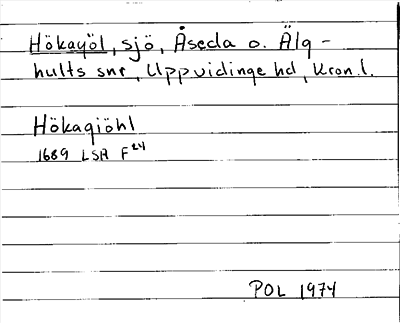 Hökagöl, sjö, Åseda o. Älg-
hults snr, Uppvidinge hd, Kron.l.
Hökagiöhl
1689 LSA F24
POL 1974